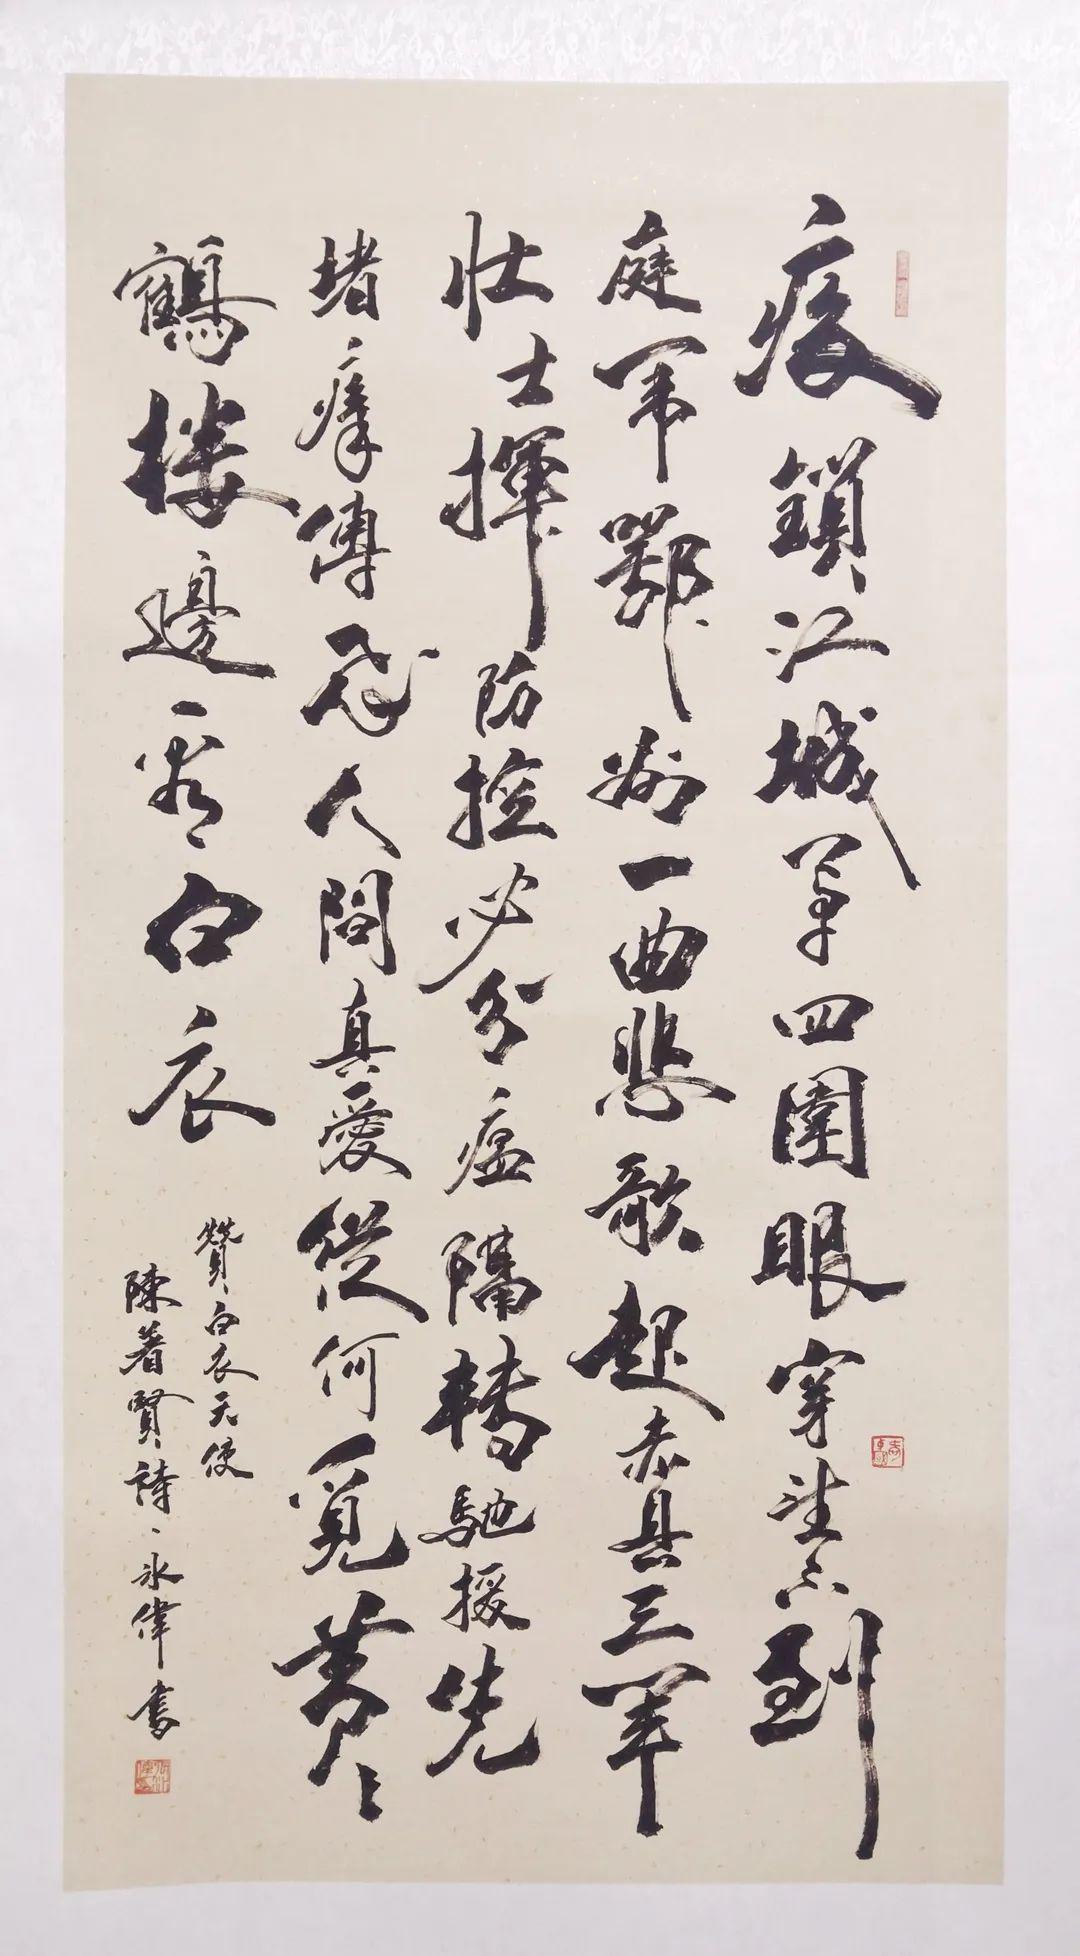 疫鎖江城草四圍眼穿望不到
庭帏鄂州一曲悲歌起赤县三軍
壮士揮防控必分瘟隔轉馳援先
堵瘴傳飛人間真愛從何覓黄
鶴楼邊看白衣
贊白衣天使
陳著賢詩永偉書